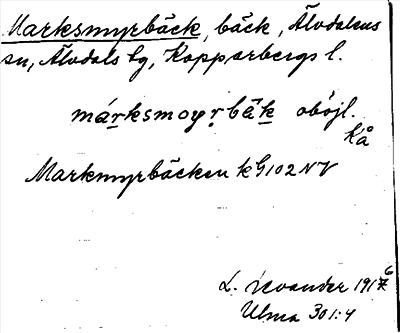 Marksmyrbäck, bäck, Älvdalens
sn, Älvdals tg, Kopparbergs l.
márksmoyr̥bǟk oböjl.
Kå
Markmyrbäcken kG102NV
L. Levander 1916
Ulma 301:4